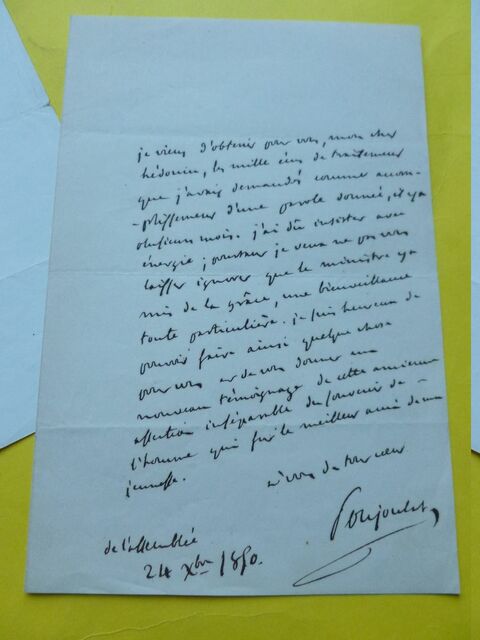 je viens d'obtenir pour vous, mon cher
hédouin, les mille écus de traitement
que j'avais demandés comme accom-
-plissement d'une parole donnée, il y a
plusieurs mois. j'ai dû insister avec
énergie ; pourtant je veux ne pas vous
laisser ignorer que le ministre y a
mis de la grâce, une bienveillance
toute particulière. je suis heureux de
pouvoir faire ainsi quelque chose
pour vous et de vous donner un
nouveau témoignage de cette ancienne
affection inséparable du souvenir de
l'homme qui fut le meilleur ami de ma
jeunesse.
à vous de tout cœur
Poujoulat
de l'assemblée
24 Xbre 1850.